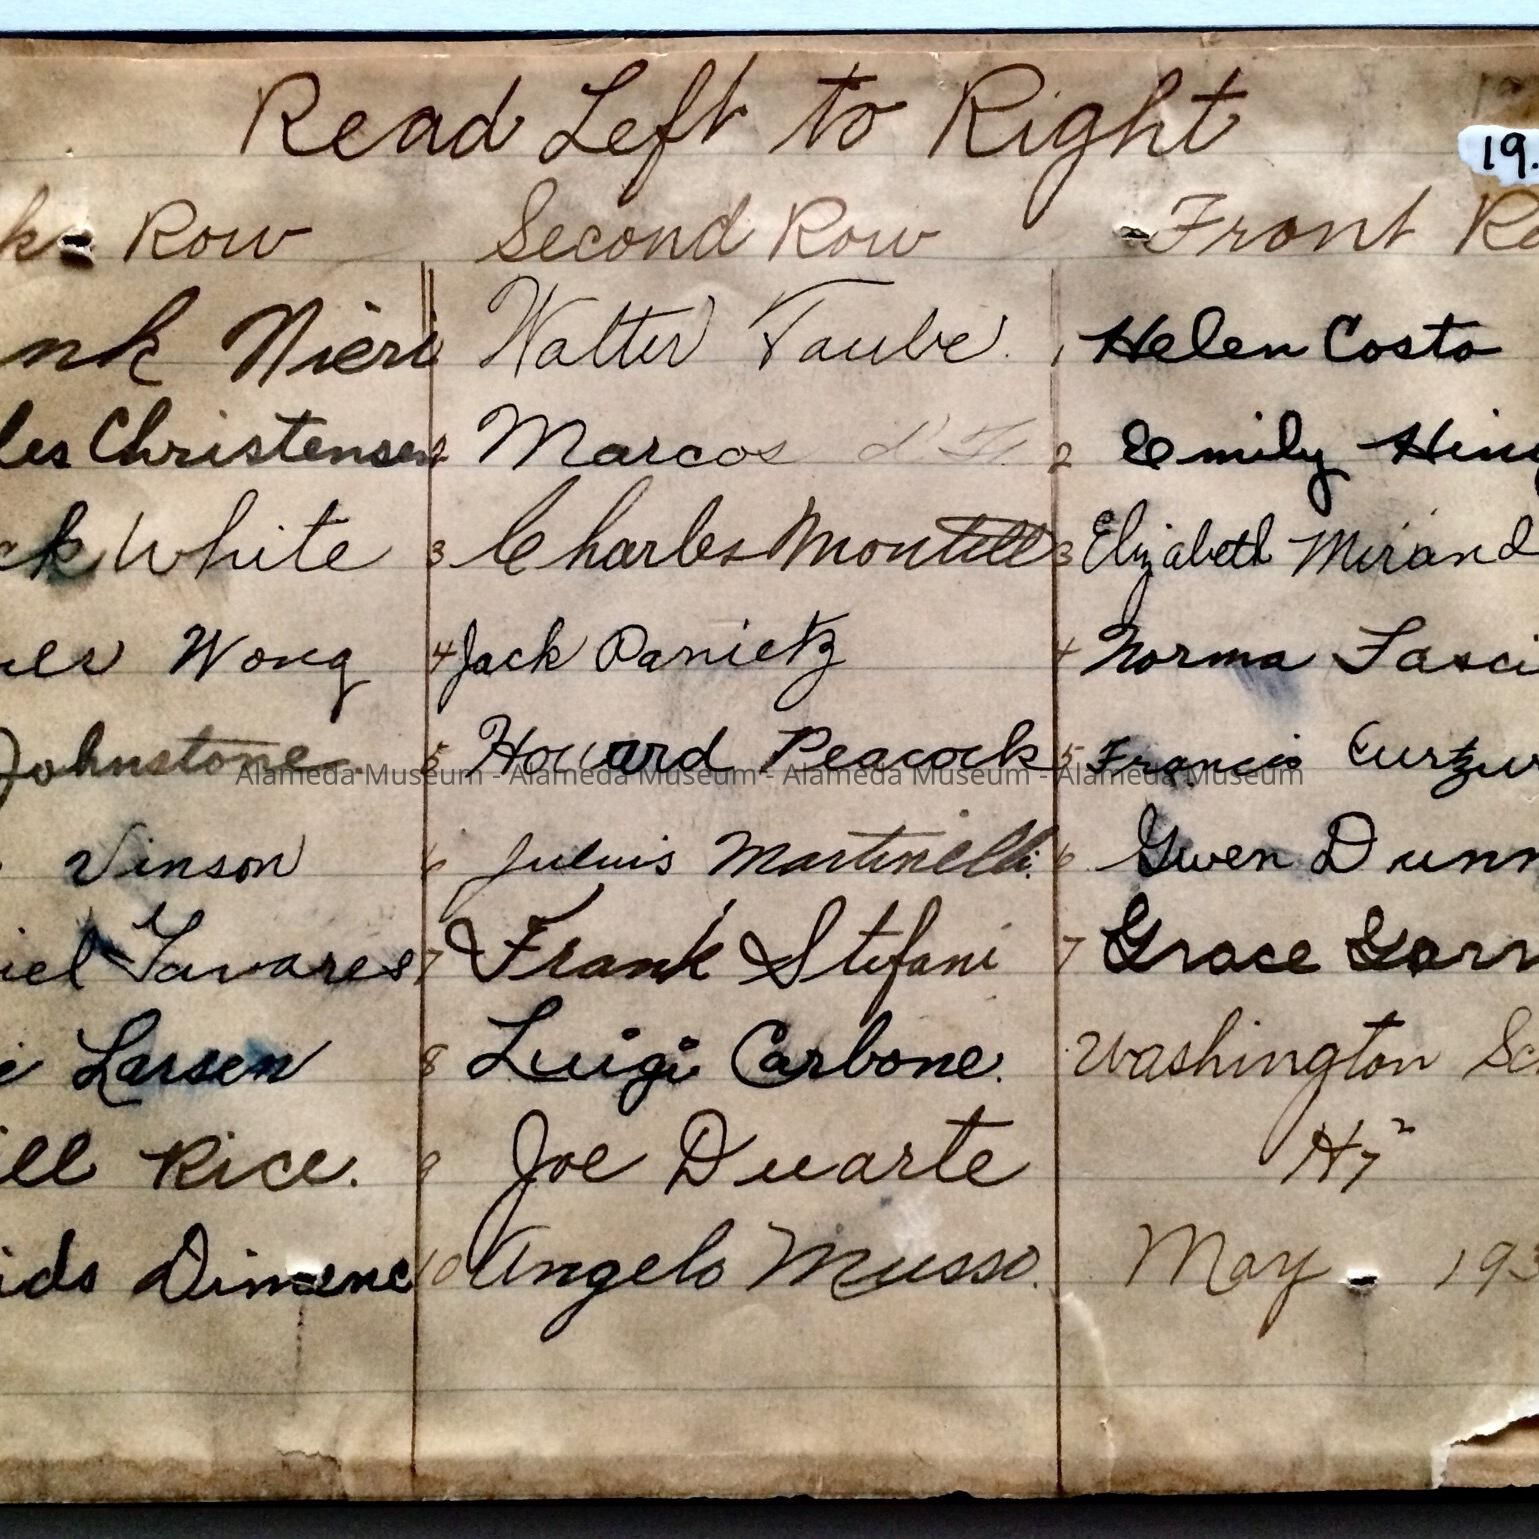 Read Left to Right
19.
k Row
Second Row
Front Ro
nk Nieri
les Christensen
ck White
Wong
Johnstone
Vinson
iel Tavares
Larsen
ill Rice.
Dimene
Walter Taube.
2 Marcos
3 Charles Montell
4 Jack Panietz
5 Howard Peacock
6 Juluis Martinelli.
7 Frank Stefani
8 Luigi Carbone.
9 Joe Duarte
10 Angelo Musso.
1 Helen Costa
2 Emily Hing
3 Elizabeth Mirand
4 Norma Fasci
5 Francis Curtzw
6 Gwen Dunn
7 Grace Garr
Washington Sc
H7²
May - 193
Alameda Museum - Alameda Museum - Alameda Museum - Alameda Museum